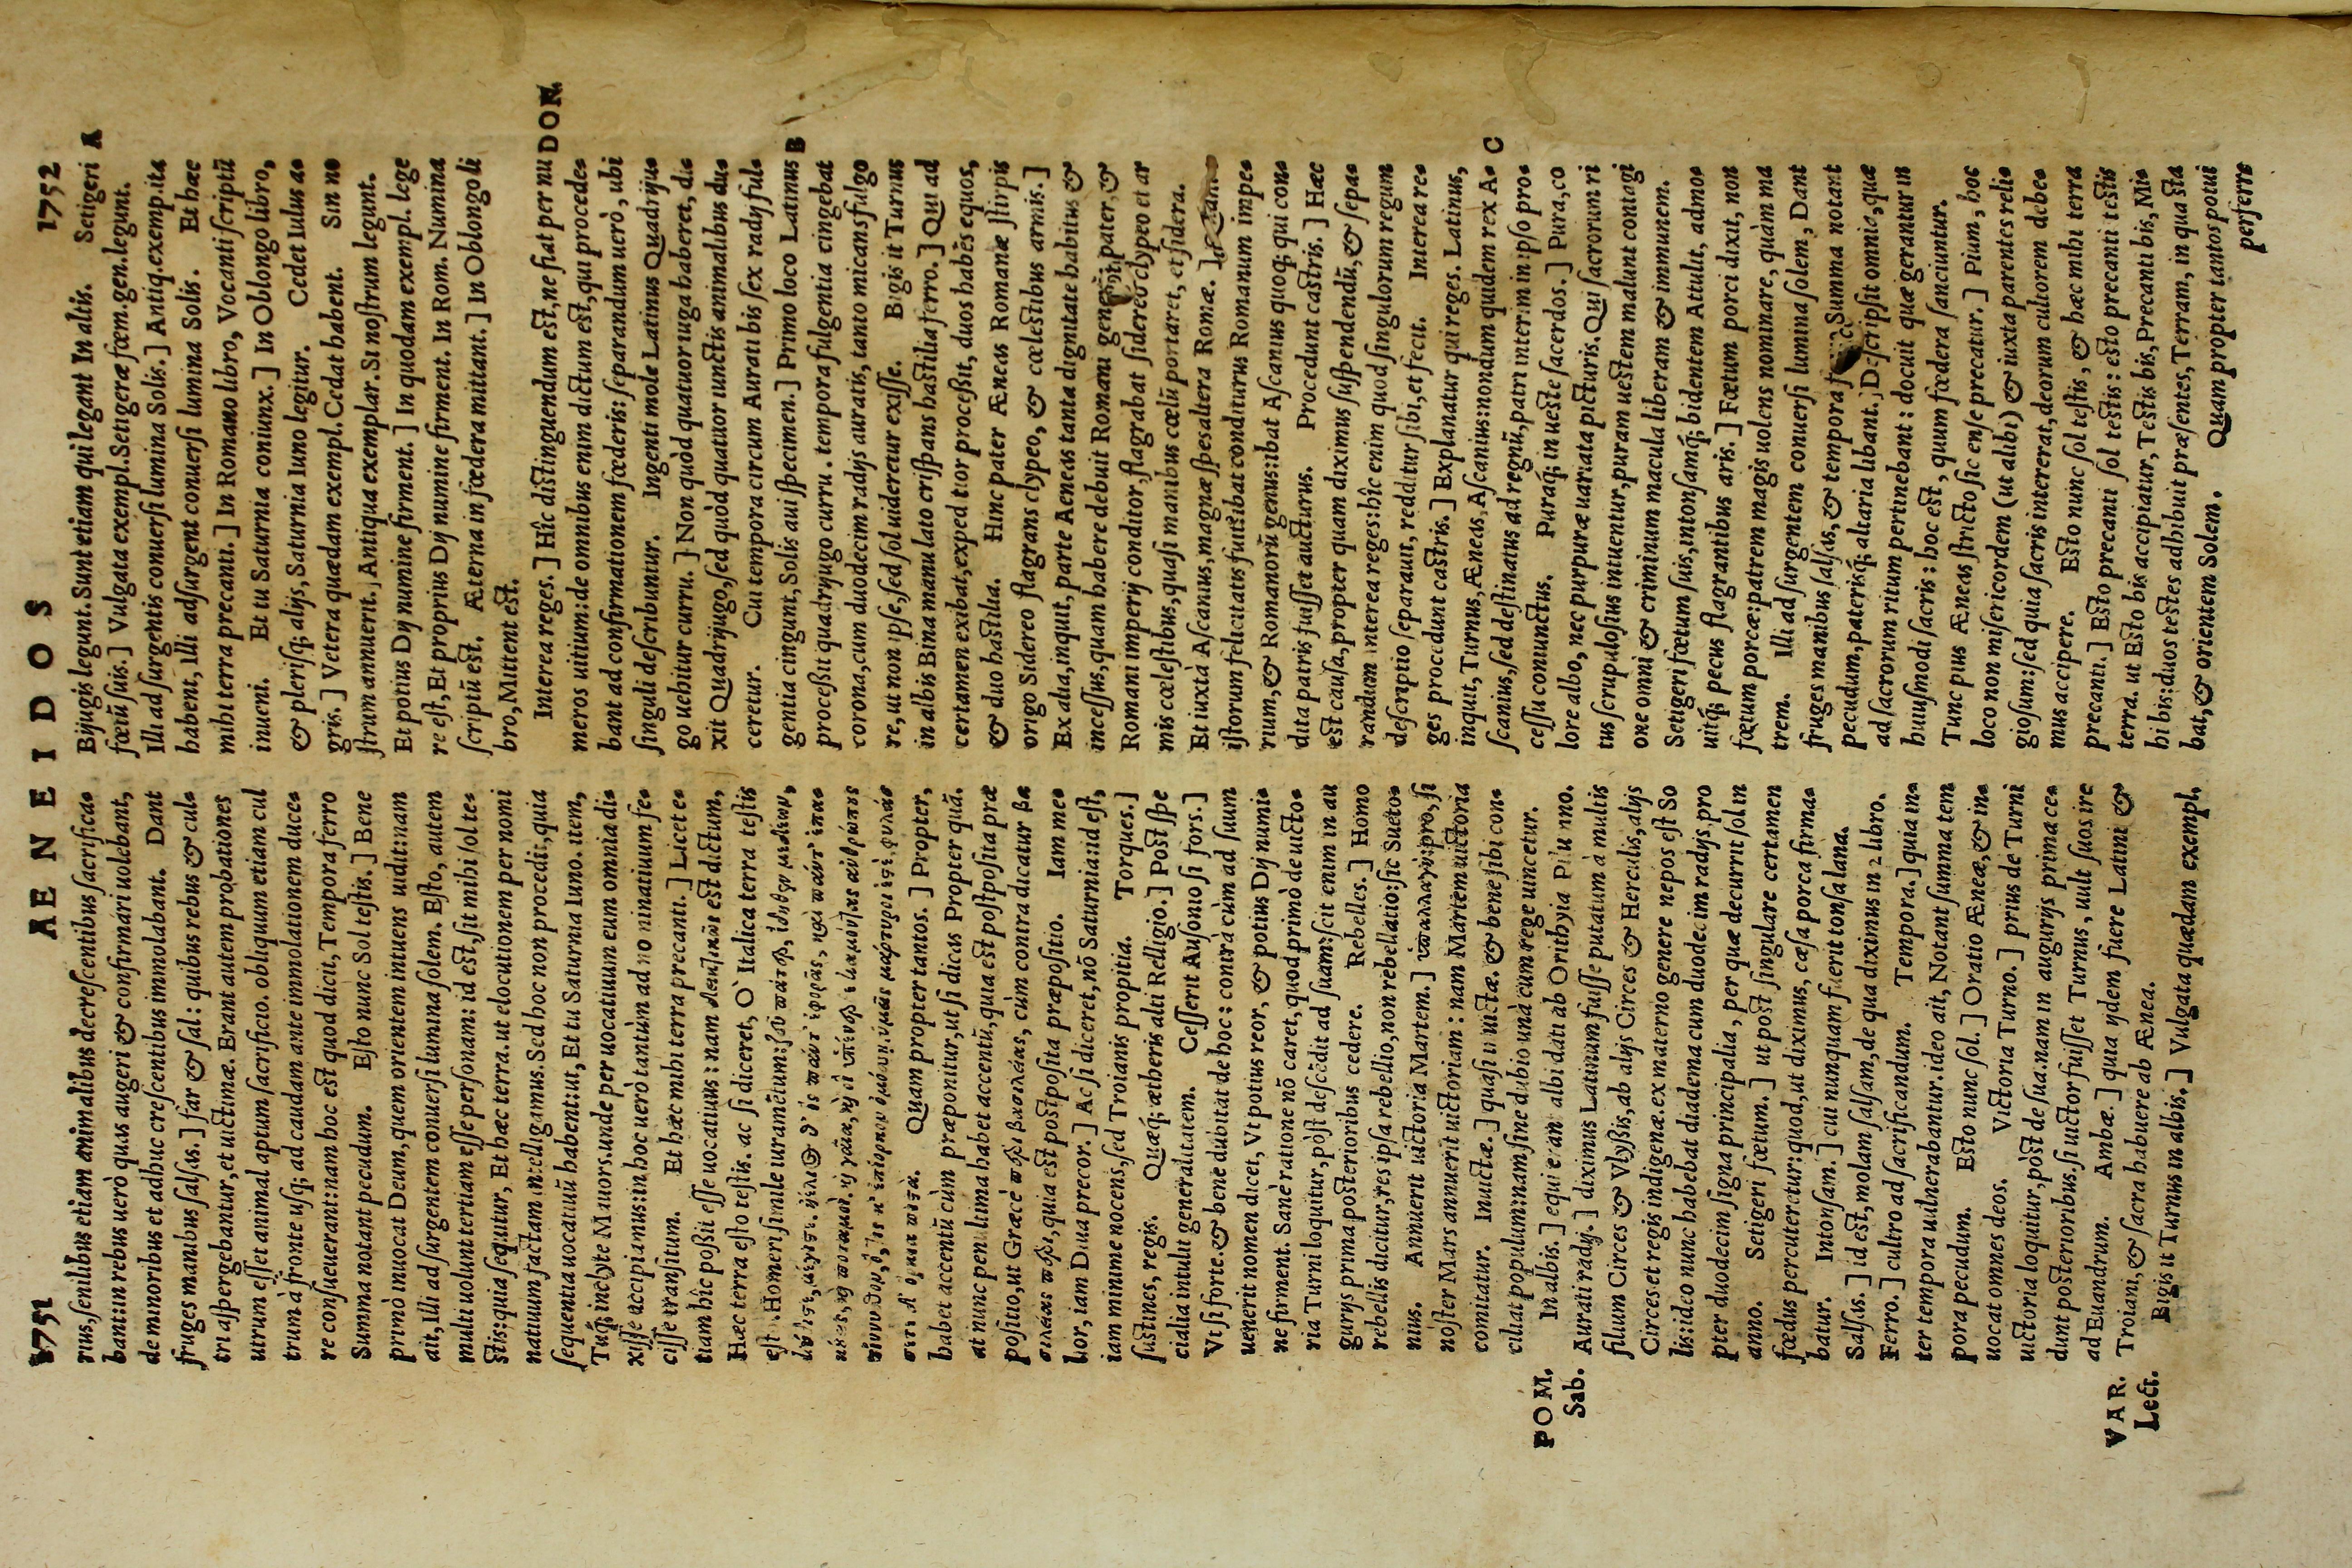 1751
AENEIDOS
1752
rius, senilibus etiam animalibus decrescentibus sacrifica-
bant: in rebus uerò quas augeri & confirmari uolebant,
de minoribus et adhuc crescentibus immolabant. Dant
fruges manibus salsas.] far & sal: quibus rebus & cul-
tri aspergebantur, et uictimæ. Erant autem probationes
utrum esset animal aptum sacrificio. obliquum etiam cul
trum à fronte usq; ad caudam ante immolationem duce-
re consueuerant: nam hoc est quod dicit, Tempora ferro
Summa notant pecudum. Esto nunc Sol testis.] Bene
primò inuocat Deum, quem orientem intuens uidit: nam
ait, Illi ad surgentem conuersi lumina solem. Esto, autem
multi uolunt tertiam esse personam: id est, sit mihi sol te-
stis: quia sequitur, Et hæc terra. ut elocutionem per nomi
natiuum factam intelligamus. Sed hoc non procedit, quia
sequentia uocatiuũ habent: ut, Et tu Saturnia Iuno. item,
Tuq; inclyte Mauors. unde per uocatiuum eum omnia di-
xisse accipiamus: in hoc uerò tantùm ad nominatiuum fe-
cisse transitum. Et hæc mihi terra precanti.] Licet e-
tiam hîc possit esse uocatiuus: nam est dictum,
Hæc terra esto testis. ac si diceret, O Italica terra testis
est. Homeri simile iuramẽtum:
Quam propter tantos.] Propter,
habet accentũ cùm præponitur, ut si dicas Propter quã.
at nunc penultima habet accentũ, quia est postposita præ
positio, ut Græcè, quia est postposita, cùm contra dicatur
Iam me-
lior, iam Diua precor.] Ac si diceret, nõ Saturnia: id est,
iam minime nocens, sed Troianis propitia. Torques.]
sustines, regis. Quæq; ætheris alti Relligio.] Post spe
cialia intulit generalitatem. Cesserit Ausonio si fors.]
Vt si forte. & bene dubitat de hoc: contrà cùm ad suum
uenerit nomen dicet, Vt potius reor, & potius Dij numi-
ne firment. Sanè ratione nõ caret, quod primò de uicto-
ria Turni loquitur, pòst descẽdit ad suam: scit enim in au
gurijs prima posterioribus cedere. Rebelles.] Homo
rebellis dicitur, res ipsa rebellio, non rebellatio: sic Sueto-
nius. Annuerit uictoria Martem.] si
noster Mars annuerit uictoriam: nam Martem uictoria
comitatur. Inuictæ.] quasi inuictæ. & bene sibi con-
ciliat populum: nam sine dubio unà cum rege uincetur.
POM. Sab.
In albis.] equi erant albi dati ab Orithyia Pilumno.
Aurati radij.] diximus Latinum fuisse putatum à multis
filium Circes & Vlyssis, ab alijs Circes & Herculis, alijs
Circes et regis indigenæ. ex materno genere nepos est So
lis: ideo nunc habebat diadema cum duodecim radijs, pro
pter duodecim signa principalia, per quæ decurrit sol in
anno. Setigeri fœtum.] ut post singulare certamen
fœdus percuteretur: quod, ut diximus, cæsa porca firma-
batur. Intonsam.] cui nunquam fuerit tonsa lana.
Salsas.] id est, molam salsam, de qua diximus in 2 libro.
Ferro.] cultro ad sacrificandum. Tempora.] quia in-
ter tempora uulnerabantur. ideo ait, Notant summa tem
pora pecudum. Esto nunc sol.] Oratio Æneæ, & in-
uocat omnes deos. Victoria Turno.] prius de Turni
uictoria loquitur, pòst de sua. nam in augurijs prima ce-
dunt posterioribus. si uictor fuisset Turnus, uult suos ire
ad Euandrum. Ambæ.] quia ijdem fuere Latini &
Troiani, & sacra habuere ab Ænea.
VAR. Lect.
Bigis it Turnus in albis.] Vulgata quædam exempl.
Bijugis legunt. Sunt etiam qui legant In altis. Setigeri A
fœtũ suis.] Vulgata exempl. Setigeræ fœm. gen. legunt.
Illi ad surgentis conuersi lumina Solis.] Antiq. exemp. ita
habent, Illi adsurgent conuersi lumina Solis. Et hæc
mihi terra precanti.] In Romano libro, Vocanti scriptũ
inueni. Et tu Saturnia coniunx.] In Oblongo libro,
& plerisq; alijs, Saturnia Iuno legitur. Cedet Iulus a-
gris.] Vetera quædam exempl. Cedat habent. Sin no
strum annuerit.] Antiqua exemplar. Si nostrum legunt.
Et potius Dij numine firment.] In quodam exempl. lege
re est, Et proprius Dij numine firment. In Rom. Numina
scriptũ est. Æterna in fœdera mittant.] In Oblongo li
bro, Mittent est.
Interea reges.] Hîc distinguendum est, ne fiat per nu DON.
meros uitium: de omnibus enim dictum est, qui procede-
bant ad confirmationem fœderis: separandum uerò, ubi
singuli describuntur. Ingenti mole Latinus Quadriju-
go uehitur curru.] Non quòd quatuor iuga haberet, di-
xit Quadrijugo, sed quòd quatuor iunctis animalibus du-
ceretur. Cui tempora circum Aurati bis sex radij ful-
gentia cingunt, Solis aui specimen.] Primo loco Latinus B
processit quadrijugo curru. tempora fulgentia cingebat
corona, cum duodecim radijs auratis, tanto micans fulgo
re, ut non ipse, sed sol uideretur exisse. Bigis it Turnus
in albis Bina manu lato crispans hastilia ferro.] Qui ad
certamen exibat, expeditior processit, duos habẽs equos,
& duo hastilia. Hinc pater Æneas Romanæ stirpis
origo Sidereo flagrans clypeo, & cœlestibus armis.]
Ex alia, inquit, parte Aeneas tanta dignitate habitus &
incessus, quam habere debuit Romani generis pater, &
Romani imperij conditor, flagrabat sidereo clypeo et ar
mis cœlestibus, quasi manibus cœlũ portaret, et sidera.
Et iuxtà Ascanius, magnæ spes altera Romæ.]
istorum felicitatis fuit: ibat conditurus Romanum impe-
rium, & Romanorũ genus: ibat Ascanius quoq; qui con-
dita patris fuisset aucturus. Procedunt castris.] Hæc
est causa, propter quam diximus suspendendũ, & sepa-
randum Interea reges: hîc enim quod singulorum regum
descriptio separauit, redditur sibi, et fecit. Interea re-
ges procedunt castris.] Explanatur qui reges. Latinus,
inquit, Turnus, Æneas, Ascanius: nondum quidem rex A- C
scanius, sed destinatus ad regnũ, patri interim in ipso pro-
cessu coniunctus. Puraq; in ueste sacerdos.] Pura, co
lore albo, nec purpuræ uariata picturis. Qui sacrorum ri
tus scrupulosius intuentur, puram uestem malunt contagi
one omni & criminum macula liberam & immunem.
Setigeri fœtum suis, intonsamq; bidentem Attulit, admo-
uitq; pecus flagrantibus aris.] Fœtum porci dixit, non
fœtum porcæ: patrem magis uolens nominare, quàm ma
trem. Illi ad surgentem conuersi lumina solem, Dant
fruges manibus salsas, & tempora Summa notant
pecudum, paterisq; altaria libant.] Descripsit omnia, quæ
ad sacrorum ritum pertinebant: docuit quæ gerantur in
huiusmodi sacris: hoc est, quum fœdera sanciuntur.
Tunc pius Æneas stricto sic ense precatur.] Pium, hoc
loco non misericordem (ut alibi) & iuxta parentes reli-
giosum: sed quia sacris intererat, deorum cultorem debe-
mus accipere. Esto nunc sol testis, & hæc mihi terra
precanti.] Esto precanti sol testis: esto precanti testis
terra. ut Esto bis accipiatur, Testis bis, Precanti bis, Mi-
hi bis: duos testes adhibuit præsentes, Terram, in qua sta
bat, & orientem Solem. Quam propter tantos potui
perferre